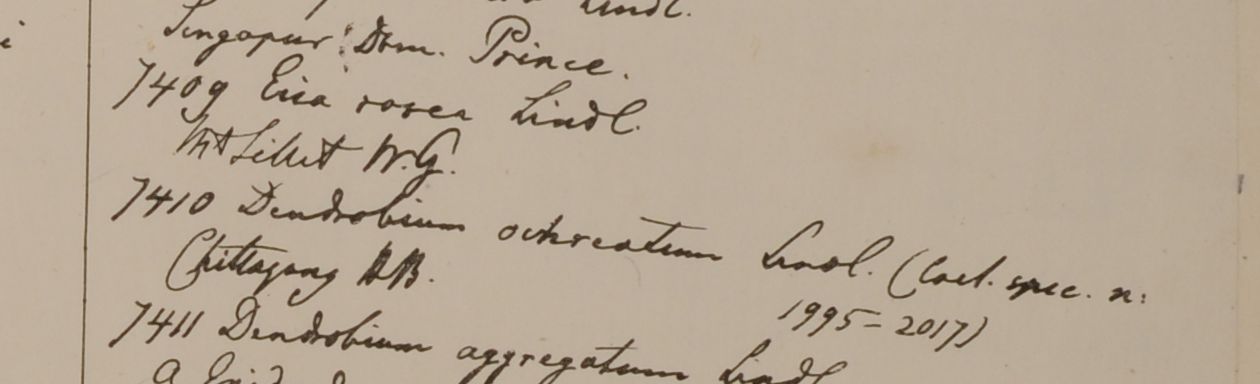 Lindl.
Singapur Dom. Prince.
7409 Eria rosea Lindl.
Mt Sillet W.G.
7410 Dendrobium ochreatum Lindl. (Coel. spec. n:
Chittagong H.B.
1995–2017)
7411 Dendrobium aggregatum Lindl